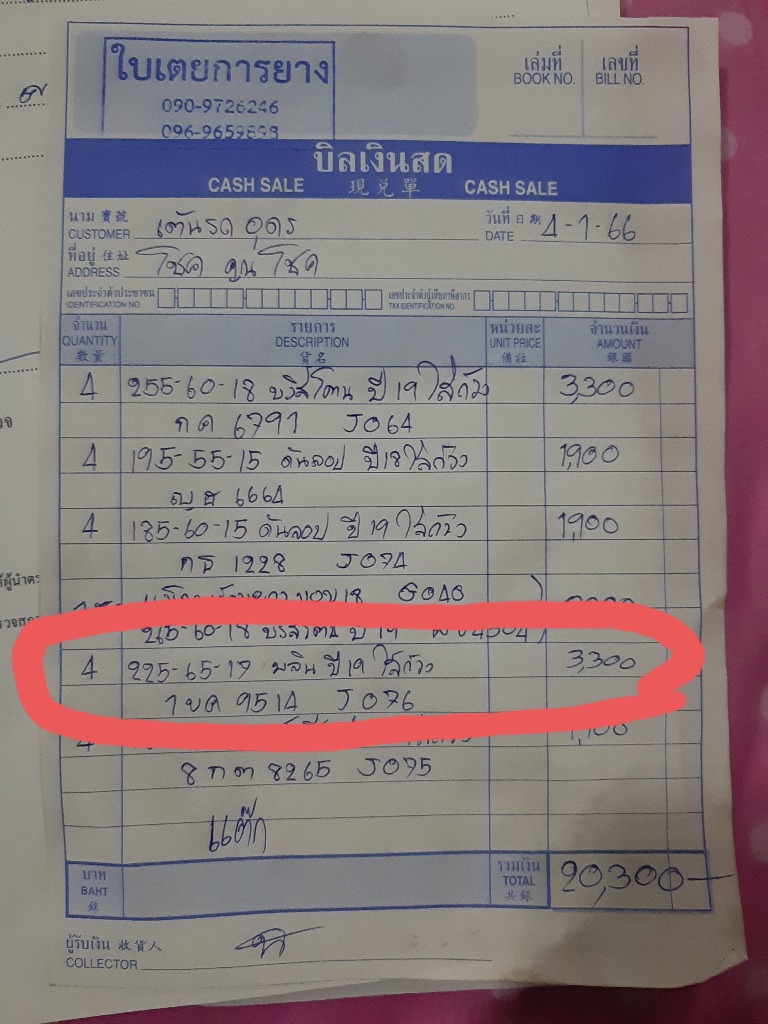 ใบเตยการยาง
090-9726246
096-9659898
เล่มที่
BOOK NO.
เลขที่
BILL NO.
บิลเงินสด
CASH SALE 現兌單 CASH SALE
นาม 寶號
CUSTOMER เต้นรถ อุดร
วันที่ 日期
DATE 4-1-66
ที่อยู่ 住址
ADDRESS โชค คุณ โชค
เลขประจำตัวประชาชน
IDENTIFICATION NO.
เลขประจำตัวผู้เสียภาษีอากร
TAX IDENTIFICATION NO.
จำนวน
QUANTITY
數量
รายการ
DESCRIPTION
貨名
หน่วยละ
UNIT PRICE
備註
จำนวนเงิน
AMOUNT
銀碼
4 255-60-18 บริสโตน ปี 19 ใส่แล้ว 3,300
กค 6791 J064
4 195-55-15 ดันลอป ปี 18 ใส่แล้ว 1,900
ญฮ 6664
4 185-60-15 ดันลอป ปี 19 ใส่แล้ว 1,900
กธ 1228 J074
G040
265-60-18 บริสโตน ปี 19
4 225-65-17 มลิน ปี 19 ใส่แล้ว 3,300
1ขค 9514 J076
4 1,100
8กฅ 8265 J075
แต๊ก
บาท
BAHT
銖
รวมเงิน
TOTAL
共銀
20,300
ผู้รับเงิน 收貨人
COLLECTOR